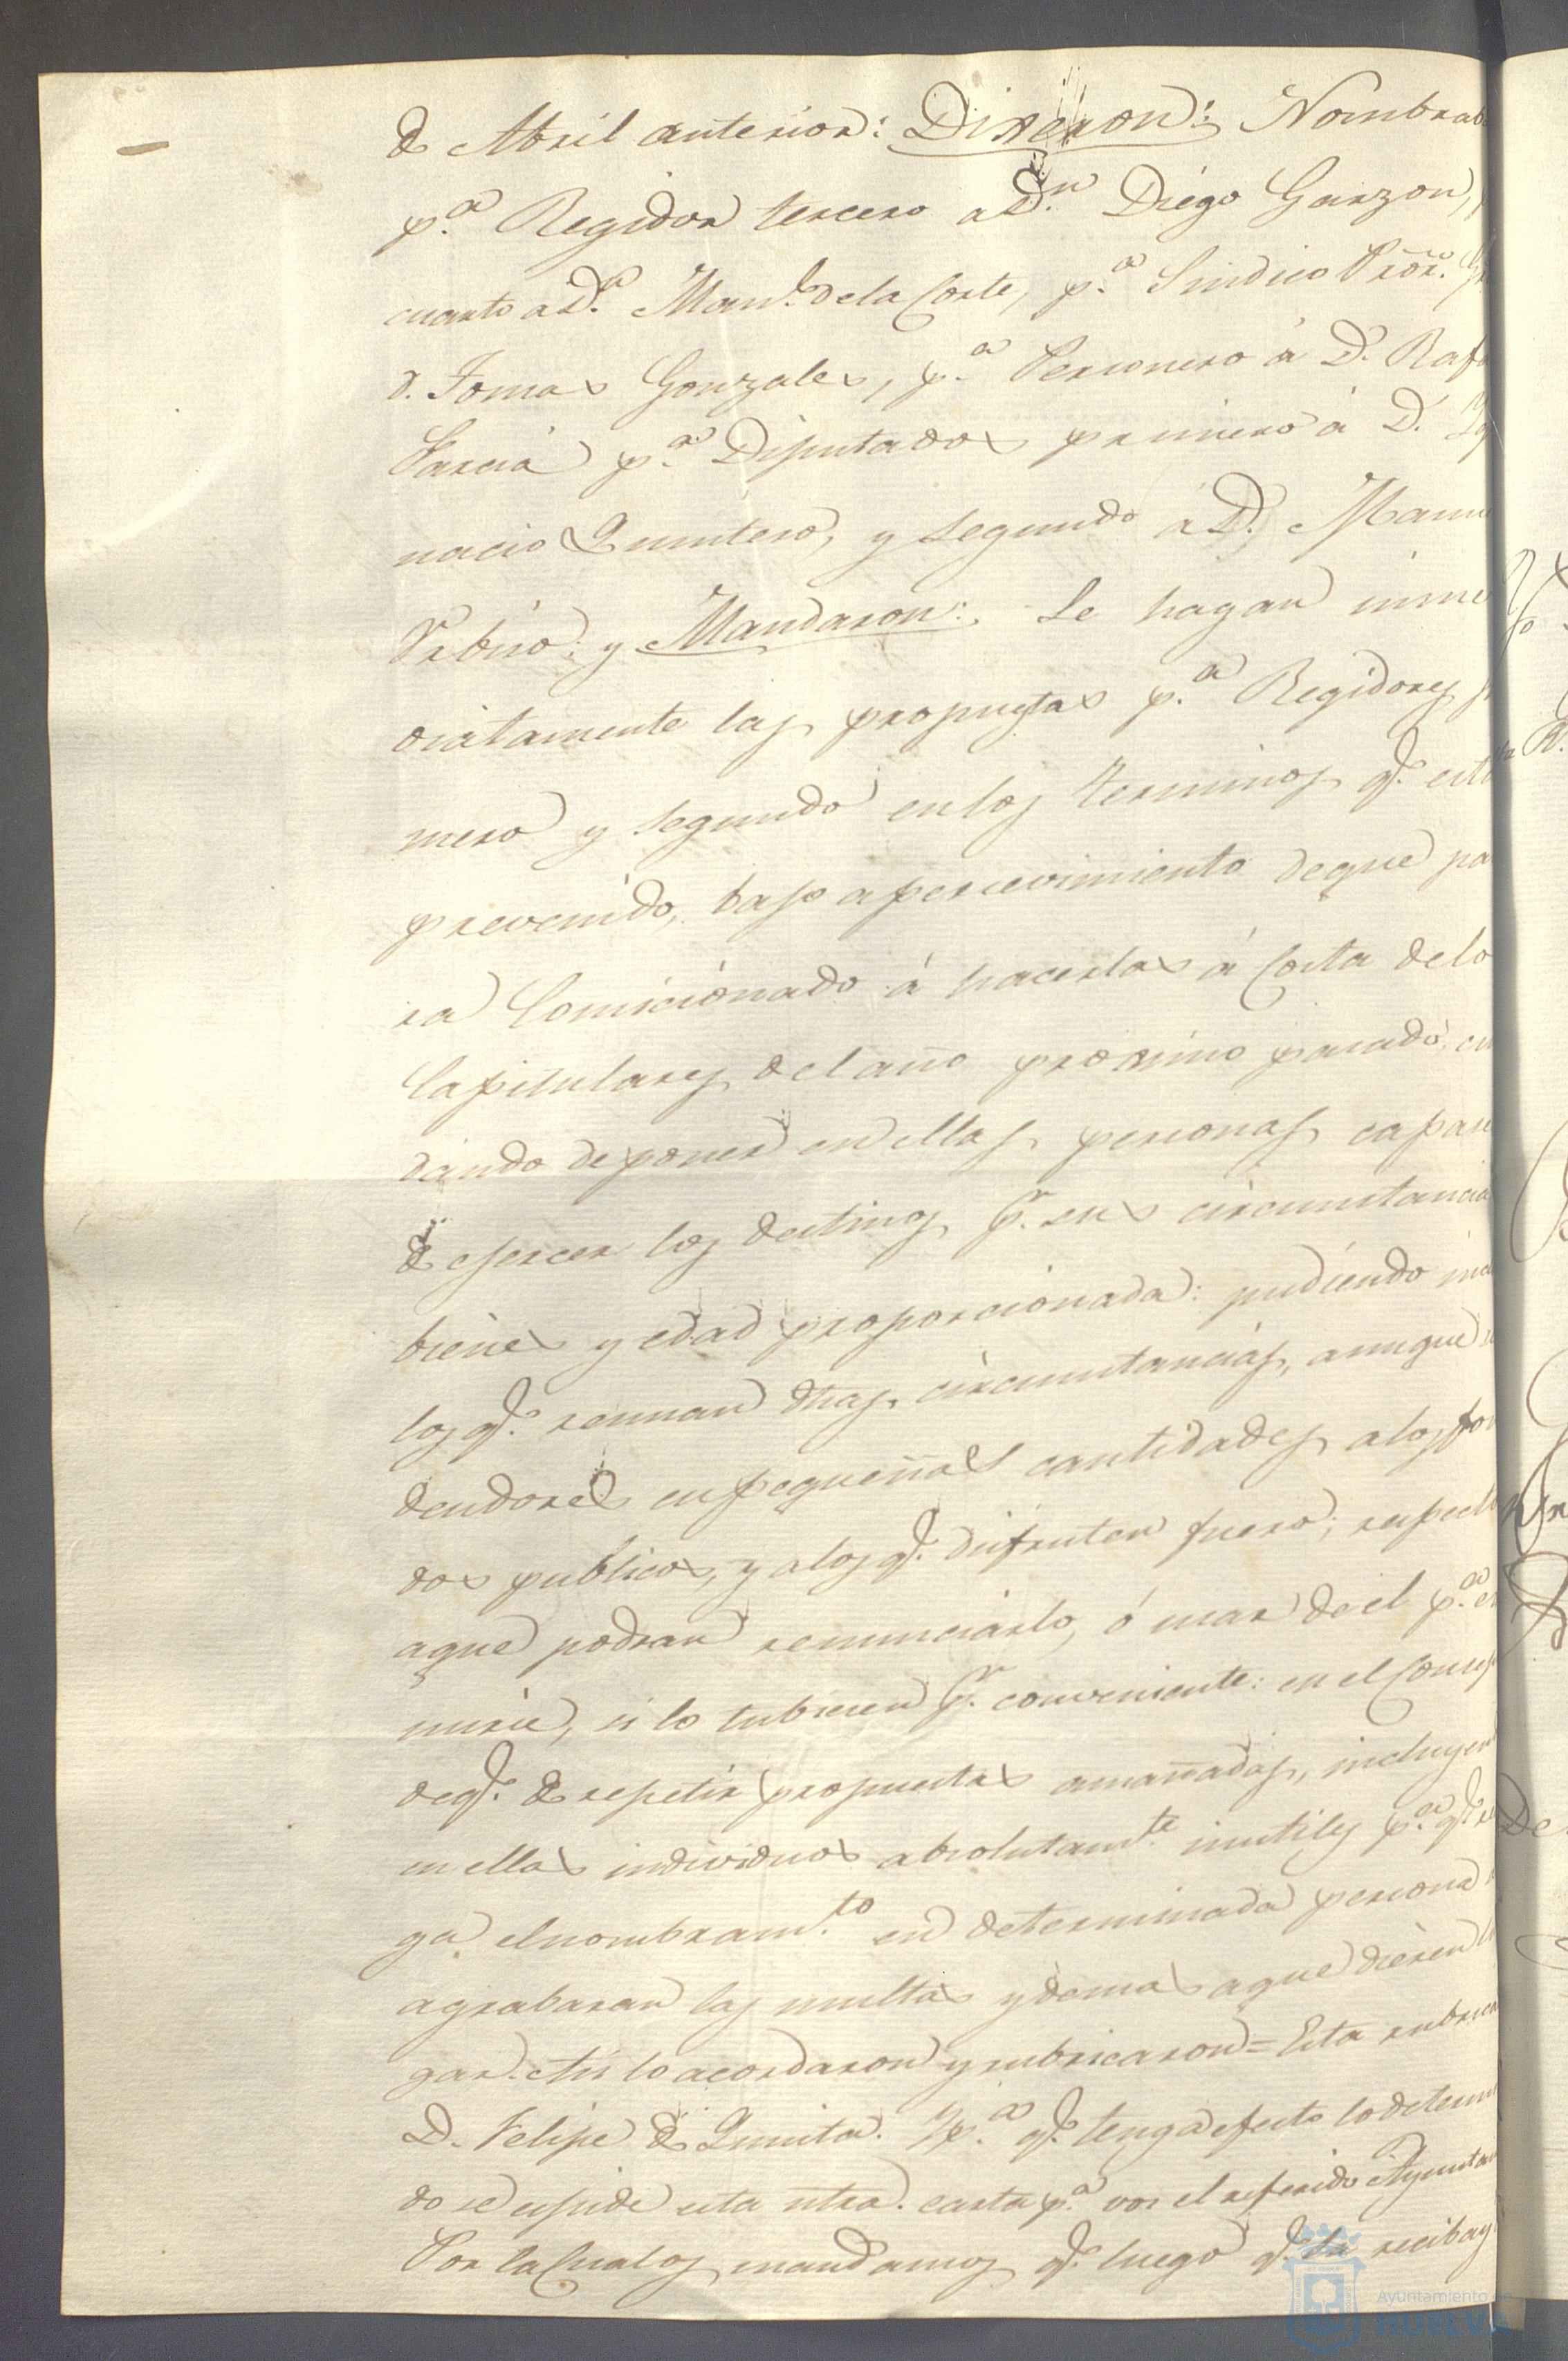 de Abril anterior: Dixeron: Nombrab
p.ª Regidor tercero a D.n Diego Garzon,
cuarto a D.n Man.l de la Corte, p.ª Sindico Pror.
D. Tomas Gonzales, p.ª Personero á D. Rafa
Garcia p.ª Diputados primero á D. Yg
nacio Quintero, y segundo á D. Manu
y Mandaron: Se hagan inme
diatamente las propuestas p.ª Regidores pri
mero y segundo en los terminos q.e está
prevenido, bajo apercevimiento de que pa
ra Comicionado á hacerlas á Costa de lo
Capitulares del año proximo pasado, cu
dando de poner en ellas personas capaces
de ejercer los destinos p.r sus circunstancias
bienes y edad proporcionada: pudiendo inc
los q.e reunan dhas. circunstancias, aunque
deudores en pequeñas cantidades a los fon
dos publicos, y a los q.e disfruten fuero; respecto
a que podran renunciarlo, ó usar de el p.ª ex
mirse, si lo tubieren p.r conveniente: en el Concep
de q.e de repetir propuestas amañadas, incluyen
en ellas individuos absolutam.te inutiles p.ª q.e
ga el nombram.to en determinada persona
agrabaran las multas y demas a que dieren lu
gar. Asi lo acordaron y rubricaron = Esta rubrica
D. Felipe de Quinta. Y p.ª q.e tenga efecto lo determ
do se espide esta ntra. carta p.ª vos el referido Ayuntam
Por la Cual os mandamos q.e luego q.e la recibays
Ayuntamiento de
HUELVA